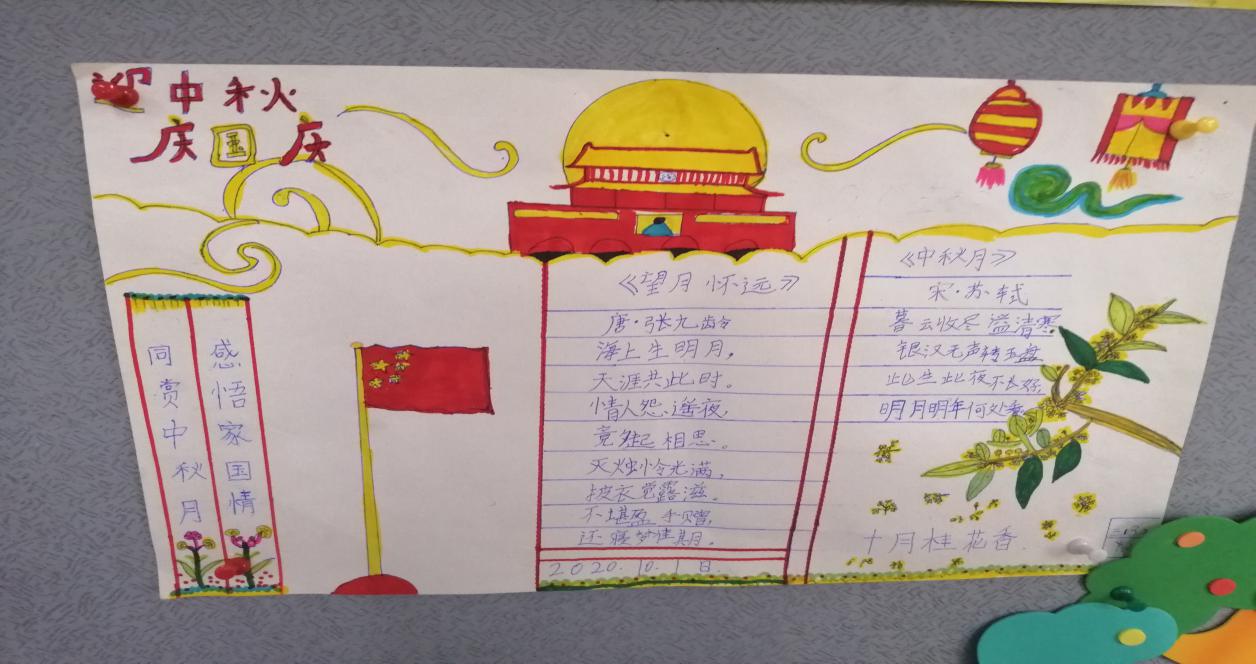 迎中秋
庆国庆
同赏中秋月
感悟家国情
《望月怀远》
唐·张九龄
海上生明月,
天涯共此时。
情人怨遥夜,
竟夕起相思。
灭烛怜光满,
披衣觉露滋。
不堪盈手赠,
还寝梦佳期。
2020.10.1日.
《中秋月》
宋·苏轼
暮云收尽溢清寒
银汉无声转玉盘
此生此夜不长好,
明月明年何处看
十月桂花香.